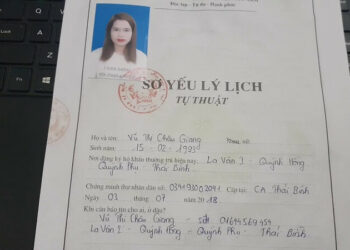 Độc lập - Tự do - Hạnh phúc
SƠ YẾU LÝ LỊCH
TỰ THUẬT
Họ và tên: Vũ Thị Châu Giang Nam, nữ:
Sinh năm: 15 - 02 - 1993
Nơi đăng ký hộ khẩu thường trú hiện nay: La Vân 1 - Quỳnh Hồng
Quỳnh Phụ - Thái Bình
Chứng minh thư nhân dân số: Cấp tại: CA Thái Bình
Ngày 03 tháng 07 năm 2018
Khi cần báo tin cho ai, ở đâu?
Vũ Thị Châu Giang - sđt 01644569459
La Vân 1 - Quỳnh Hồng - Quỳnh Phụ - Thái Bình